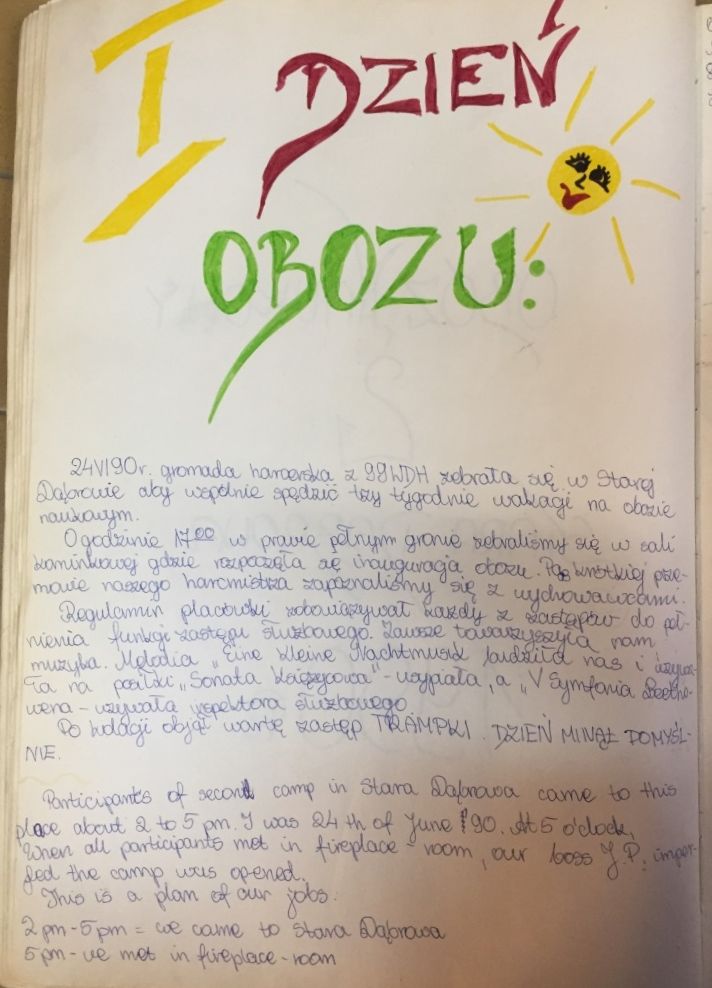 I DZIEŃ
OBOZU:
24VI90r. gromada harcerska z 99WDH zebrała się w Starej
Dąbrowie aby wspólnie spędzić trzy tygodnie wakacji na obozie
naukowym.
O godzinie 17⁰⁰ w prawie pełnym gronie zebraliśmy się w sali
kominkowej gdzie rozpoczęła się inauguracja obozu. Po krótkiej prze-
mowie naszego harcmistrza zapoznaliśmy się z wychowawcami.
Regulamin placówki zobowiązywał każdy z zastępów do peł-
nienia funkcji zastępu służbowego. Zawsze towarzyszyła nam
muzyka. Melodia „Eine Kleine Nachtmusik budziła nas i wzywa-
ła na posiłki „Sonata Księżycowa"-usypiała, a „V Symfonia Beetho-
wena - wzywała inspektora służbowego
Po kolacji objął wartę zastęp TRAMPKI. DZIEŃ MINĄŁ POMYŚL-
NIE.
Participants of second camp in Stara Dąbrowa came to this
place about 2 to 5 pm. I was 24 th of June 90. At 5 o'clock,
When all participants met in fireplace-room, our boss J.P. imper-
fied the camp was opened.
This is a plan of our jobs.
2 pm-5pm = we came to Stara Dąbrowa
5 pm-we met in fireplace-room